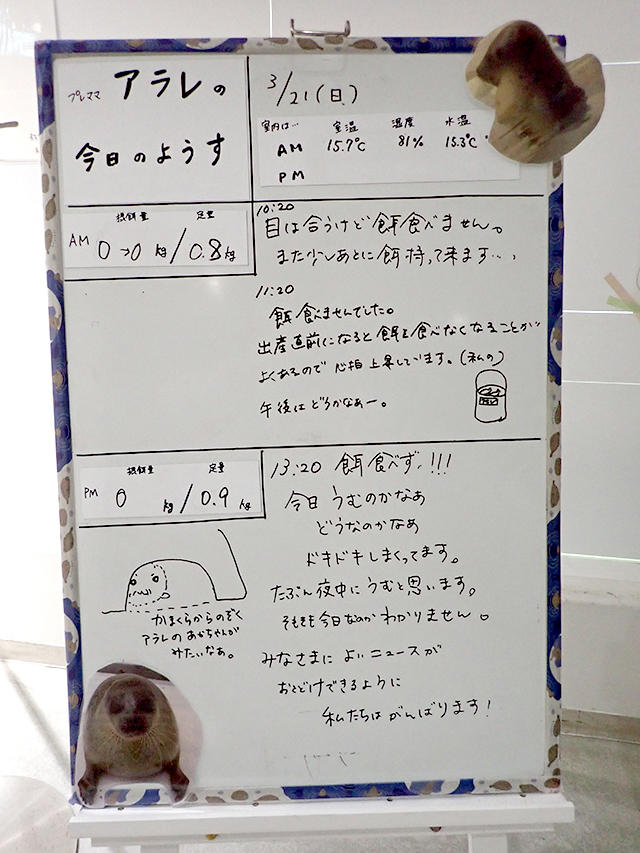 プレママ アラレの
今日のようす
3/21(日)
室内は… 室温 湿度 水温
AM 15.7℃ 81% 15.3℃
PM
摂餌量 定量
AM 0→0 kg/0.8kg
10:20
目は合うけど餌食べません。
また少しあとに餌持って来ます…
11:20
餌食べませんでした。
出産直前になると餌を食べなくなることが
よくあるので心拍上昇しています。(私の)
午後はどうかなぁー。
摂餌量 定量
PM 0 kg/0.9kg
13:20 餌食べず!!!
今日うむのかなあ
どうなのかなあ
ドキドキしまくってます。
たぶん夜中にうむと思います。
そもそも今日なのかわかりません。
みなさまによいニュースが
おとどけできるように
私たちはがんばります!
かまくらからのぞく
アラレのあかちゃんが
みたいなぁ。